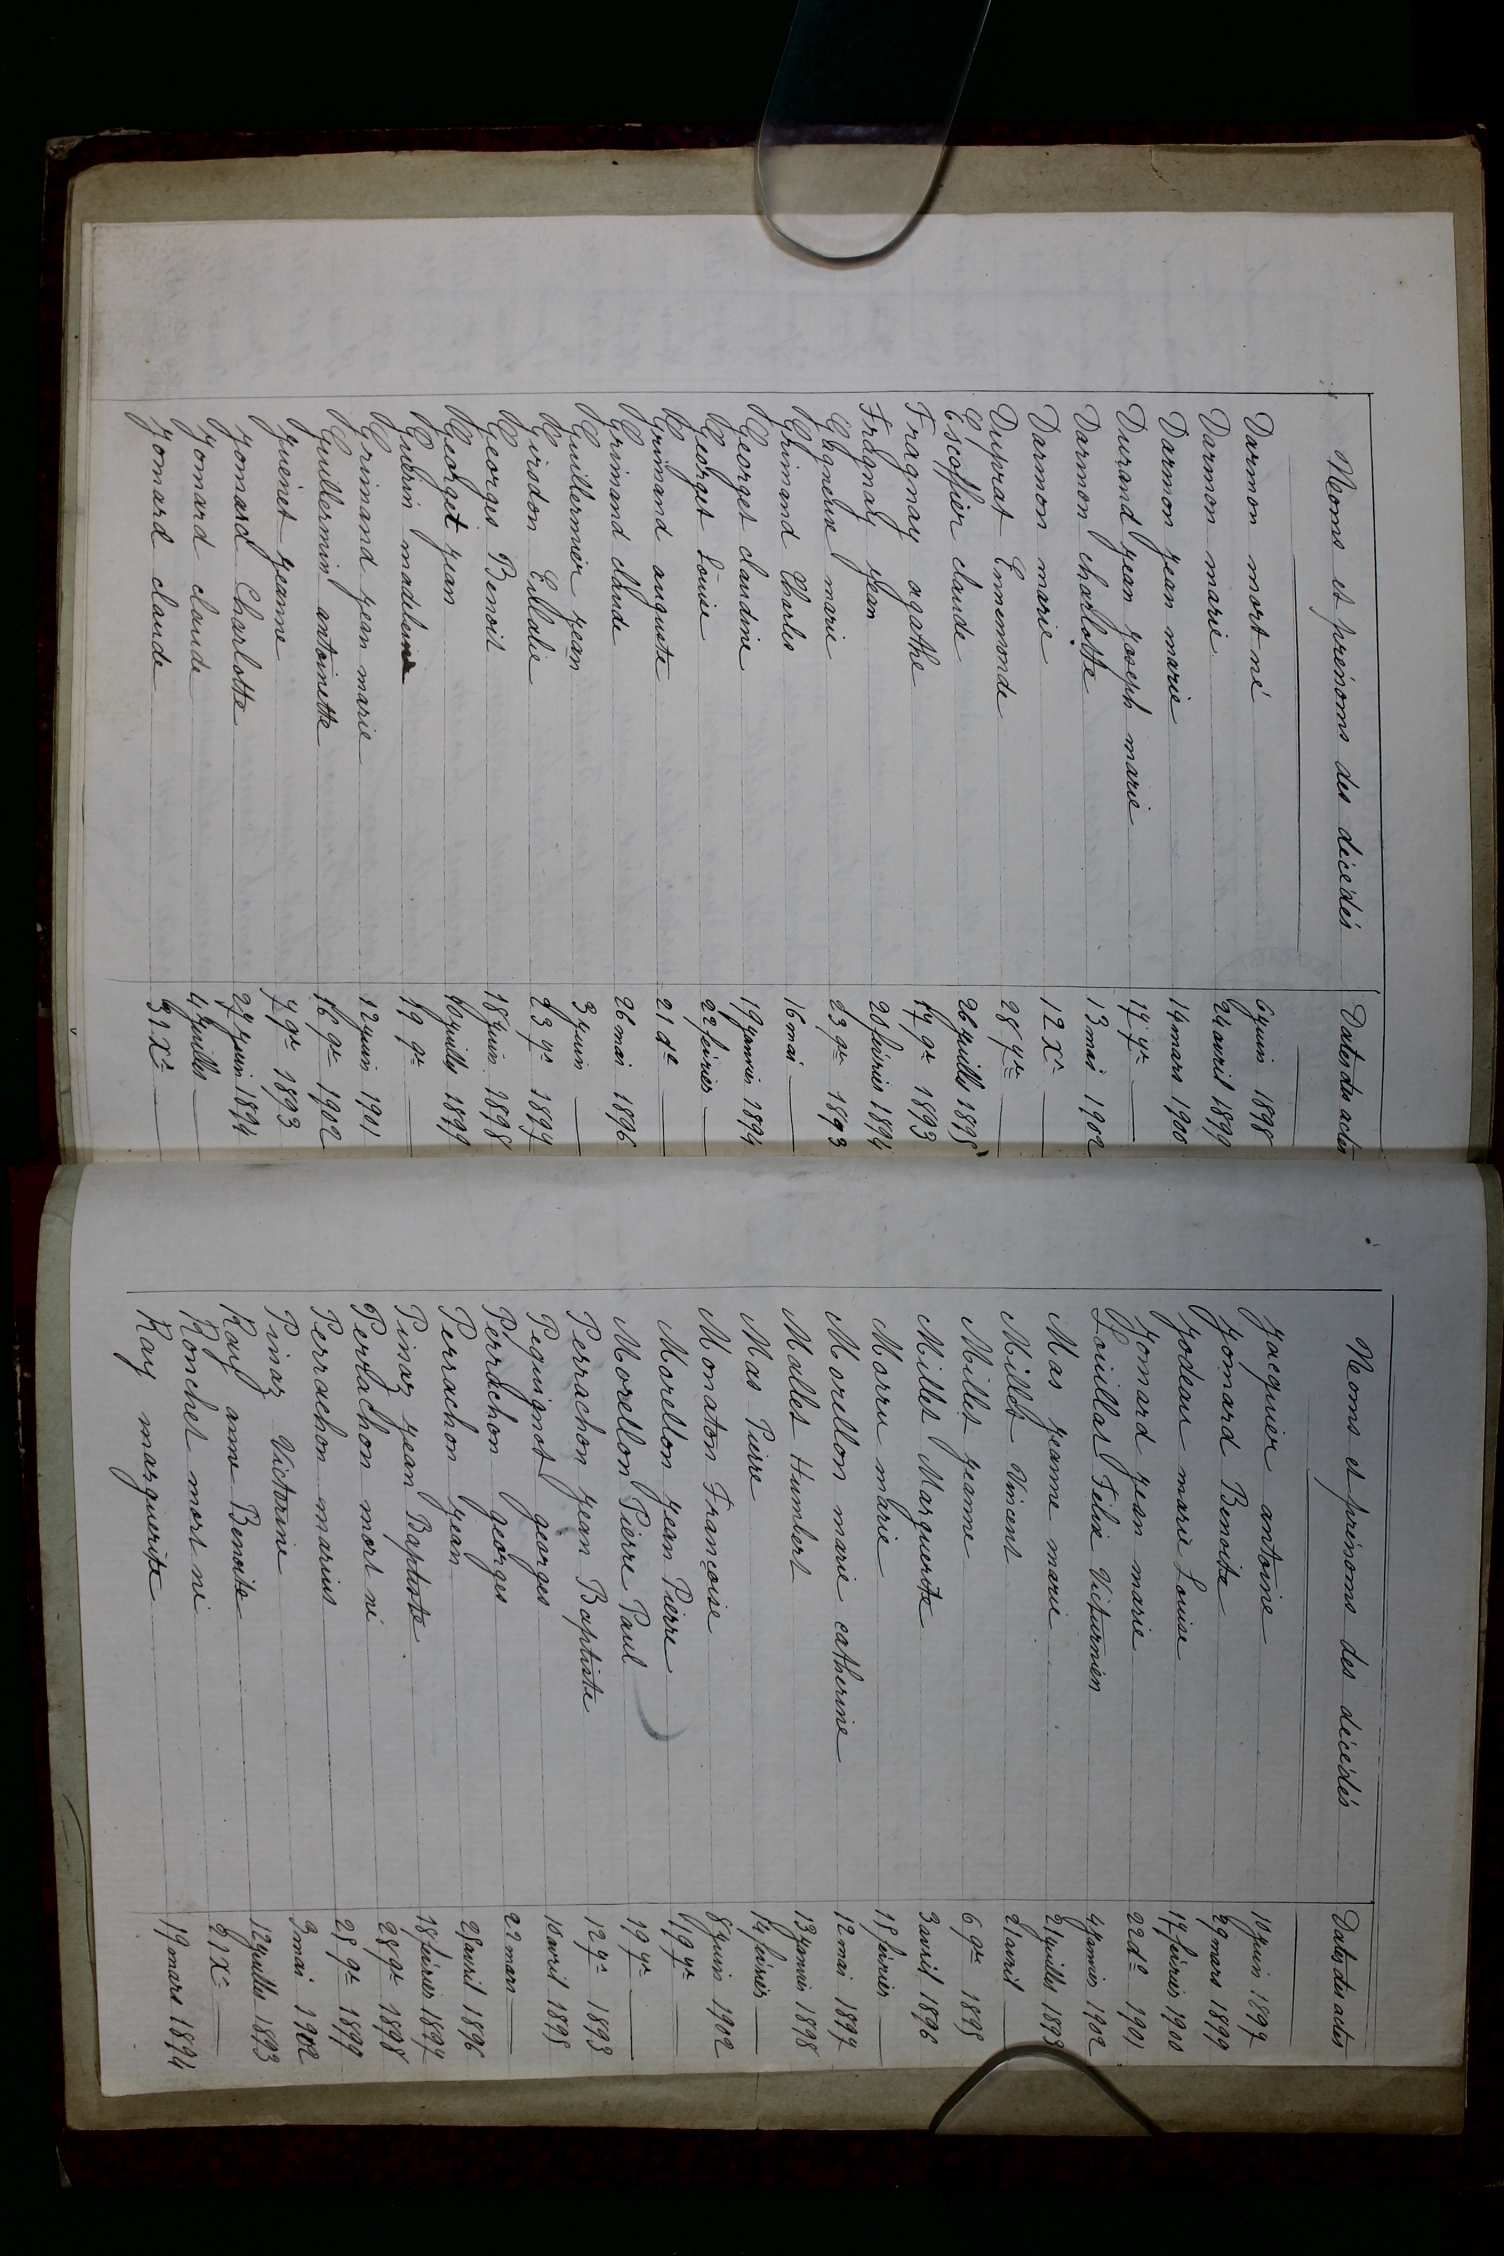 Noms et prénoms des décédés Dates des actes
Darmon mort né 6 juin 1898
Darmon marie 24 avril 1899
Darmon jean marie 14 mars 1900
Durand jean joseph marie 17 7re
Darmon charlotte 13 mai 1902
Darmon marie 12 Xre
Duprat Ennemonde 28 7re
Escoffier claude 26 juillet 1895
Fragnay agathe 17 9re 1893
Fragnay jean 20 février 1894
Gagneux marie 23 9re 1893
Grimand Charles 16 mai
Georget claudine 19 janvier 1894
Georget Louise 22 février
Grimand auguste 21 de
Grimand claude 26 mai 1896
Guillermier jean 3 juin
Girodon Eulalie 23 9re 1897
Georges Benoit 18 juin 1898
Georget jean 10 juillet 1899
Guérin madeleine 19 9re
Grimand jean marie 12 juin 1901
Guillermin antoinette 16 9re 1902
Guénet jeanne 7 9re 1893
Jomard Charlotte 27 juin 1894
Jomard claude 4 juillet
Jomard claude 31 Xre
Noms et prénoms des décédés Dates des actes
Jacquier antoine 10 juin 1897
Jomard Benoite 29 mars 1899
Jodeau marie Louise 17 février 1900
Jomard jean marie 22 do 1901
Louillat Félix Viturnien 4 janvier 1902
Mas jeanne marie 21 juillet 1893
Millet Vincent 21 avril
Millet jeanne 6 9re 1895
Millet Marguerite 3 avril 1896
Morru marie 18 février
Morellon marie catherine 12 mai 1897
Mollet Humbert 13 janvier 1898
Mas Pierre 14 février
Momaton Françoise 8 juin 1902
Morellon jean Pierre 19 7re
Morellon Pierre Paul 19 7re
Perrachon jean Baptiste 12 7re 1893
Pequignot georges 10 avril 1895
Perrachon georges 22 mars
Perrachon jean 25 avril 1896
Pinaz jean Baptiste 18 février 1897
Perrachon mort né 28 9re 1898
Perrachon marius 25 9re 1899
Pinaz Victorine 3 mai 1902
Ray anne Benoite 12 juillet 1893
Ronchet mort né 21 Xre
Ray marguerite 19 mars 1894